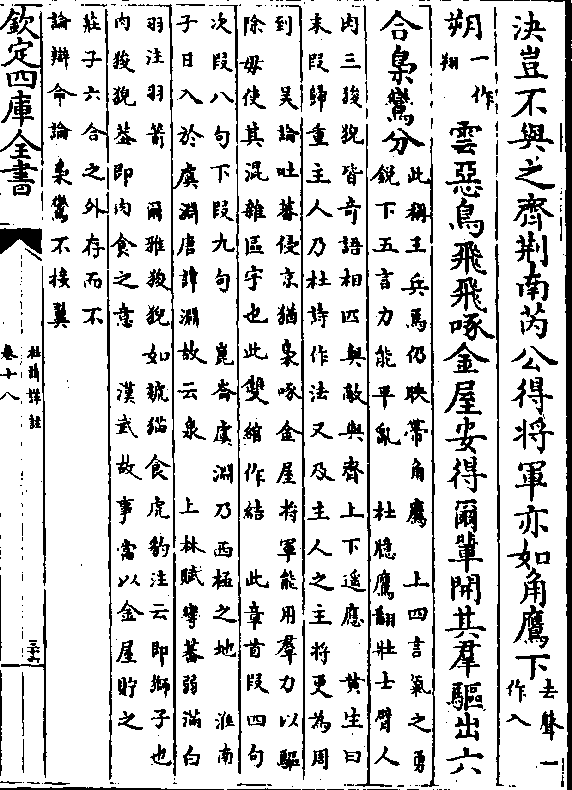 決豈不與之齊荆南芮公得將軍亦如角鷹下去聲一作入
朔一作翔雲惡鳥飛飛啄金屋安得爾輩開其羣驅出六
合梟鸞分
此稱王兵馬仍映帶角鷹 上四言氣之勇
銳下五言力能平亂 杜臆鷹翻壯士臂人
肉三狻猊皆奇語相匹與敵與齊上下遥應 黄生曰
末段歸重主人乃杜詩作法又及主人之主將更為周
到 吴論吐蕃侵京猶梟啄金屋將軍能用羣力以驅
除毋使其混雜區宇也此雙綰作結 此章首段四句
次段八句下段九句 崑崙虞淵乃西極之地 淮南
子日入於虞淵唐諱淵故云泉 上林賦彎蕃弱滿白
羽注羽箭 爾雅狻猊如虦猫食虎豹注云即獅子也
肉狻猊葢即肉食之意 漢武故事當以金屋貯之
莊子六合之外存而不
論辯命論梟鸞不接翼
欽定四庫全書
杜詩詳註
卷十八